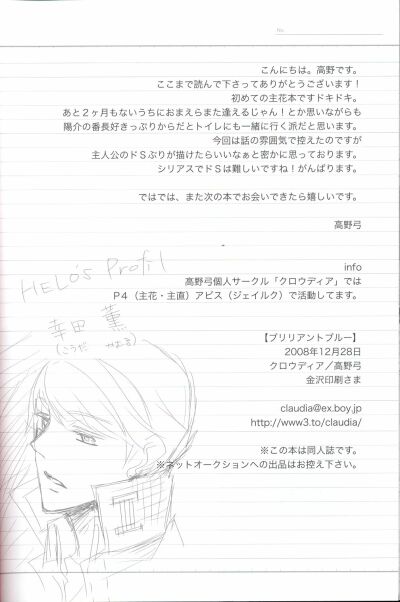 No.
こんにちは。高野です。
ここまで読んで下さってありがとうございます！
初めての主花本ですドキドキ。
あと２ヶ月もないうちにおまえらまた逢えるじゃん！とか思いながらも
陽介の番長好きっぷりからだとトイレにも一緒に行く派だと思います。
今回は話の雰囲気で控えたのですが
主人公のドSぶりが描けたらいいなぁと密かに思っております。
シリアスでドSは難しいですね！がんばります。
ではでは、また次の本でお会いできたら嬉しいです。
高野弓
info
高野弓個人サークル「クロウディア」では
P４（主花・主直）アビス（ジェイルク）で活動してます。
HELO's Profil
幸田 薫
(こうだ かおる)
【ブリリアントブルー】
2008年12月28日
クロウディア／高野弓
金沢印刷さま
claudia@ex.boy.jp
http://www3.to/claudia/
※この本は同人誌です。
※ネットオークションへの出品はお控え下さい。